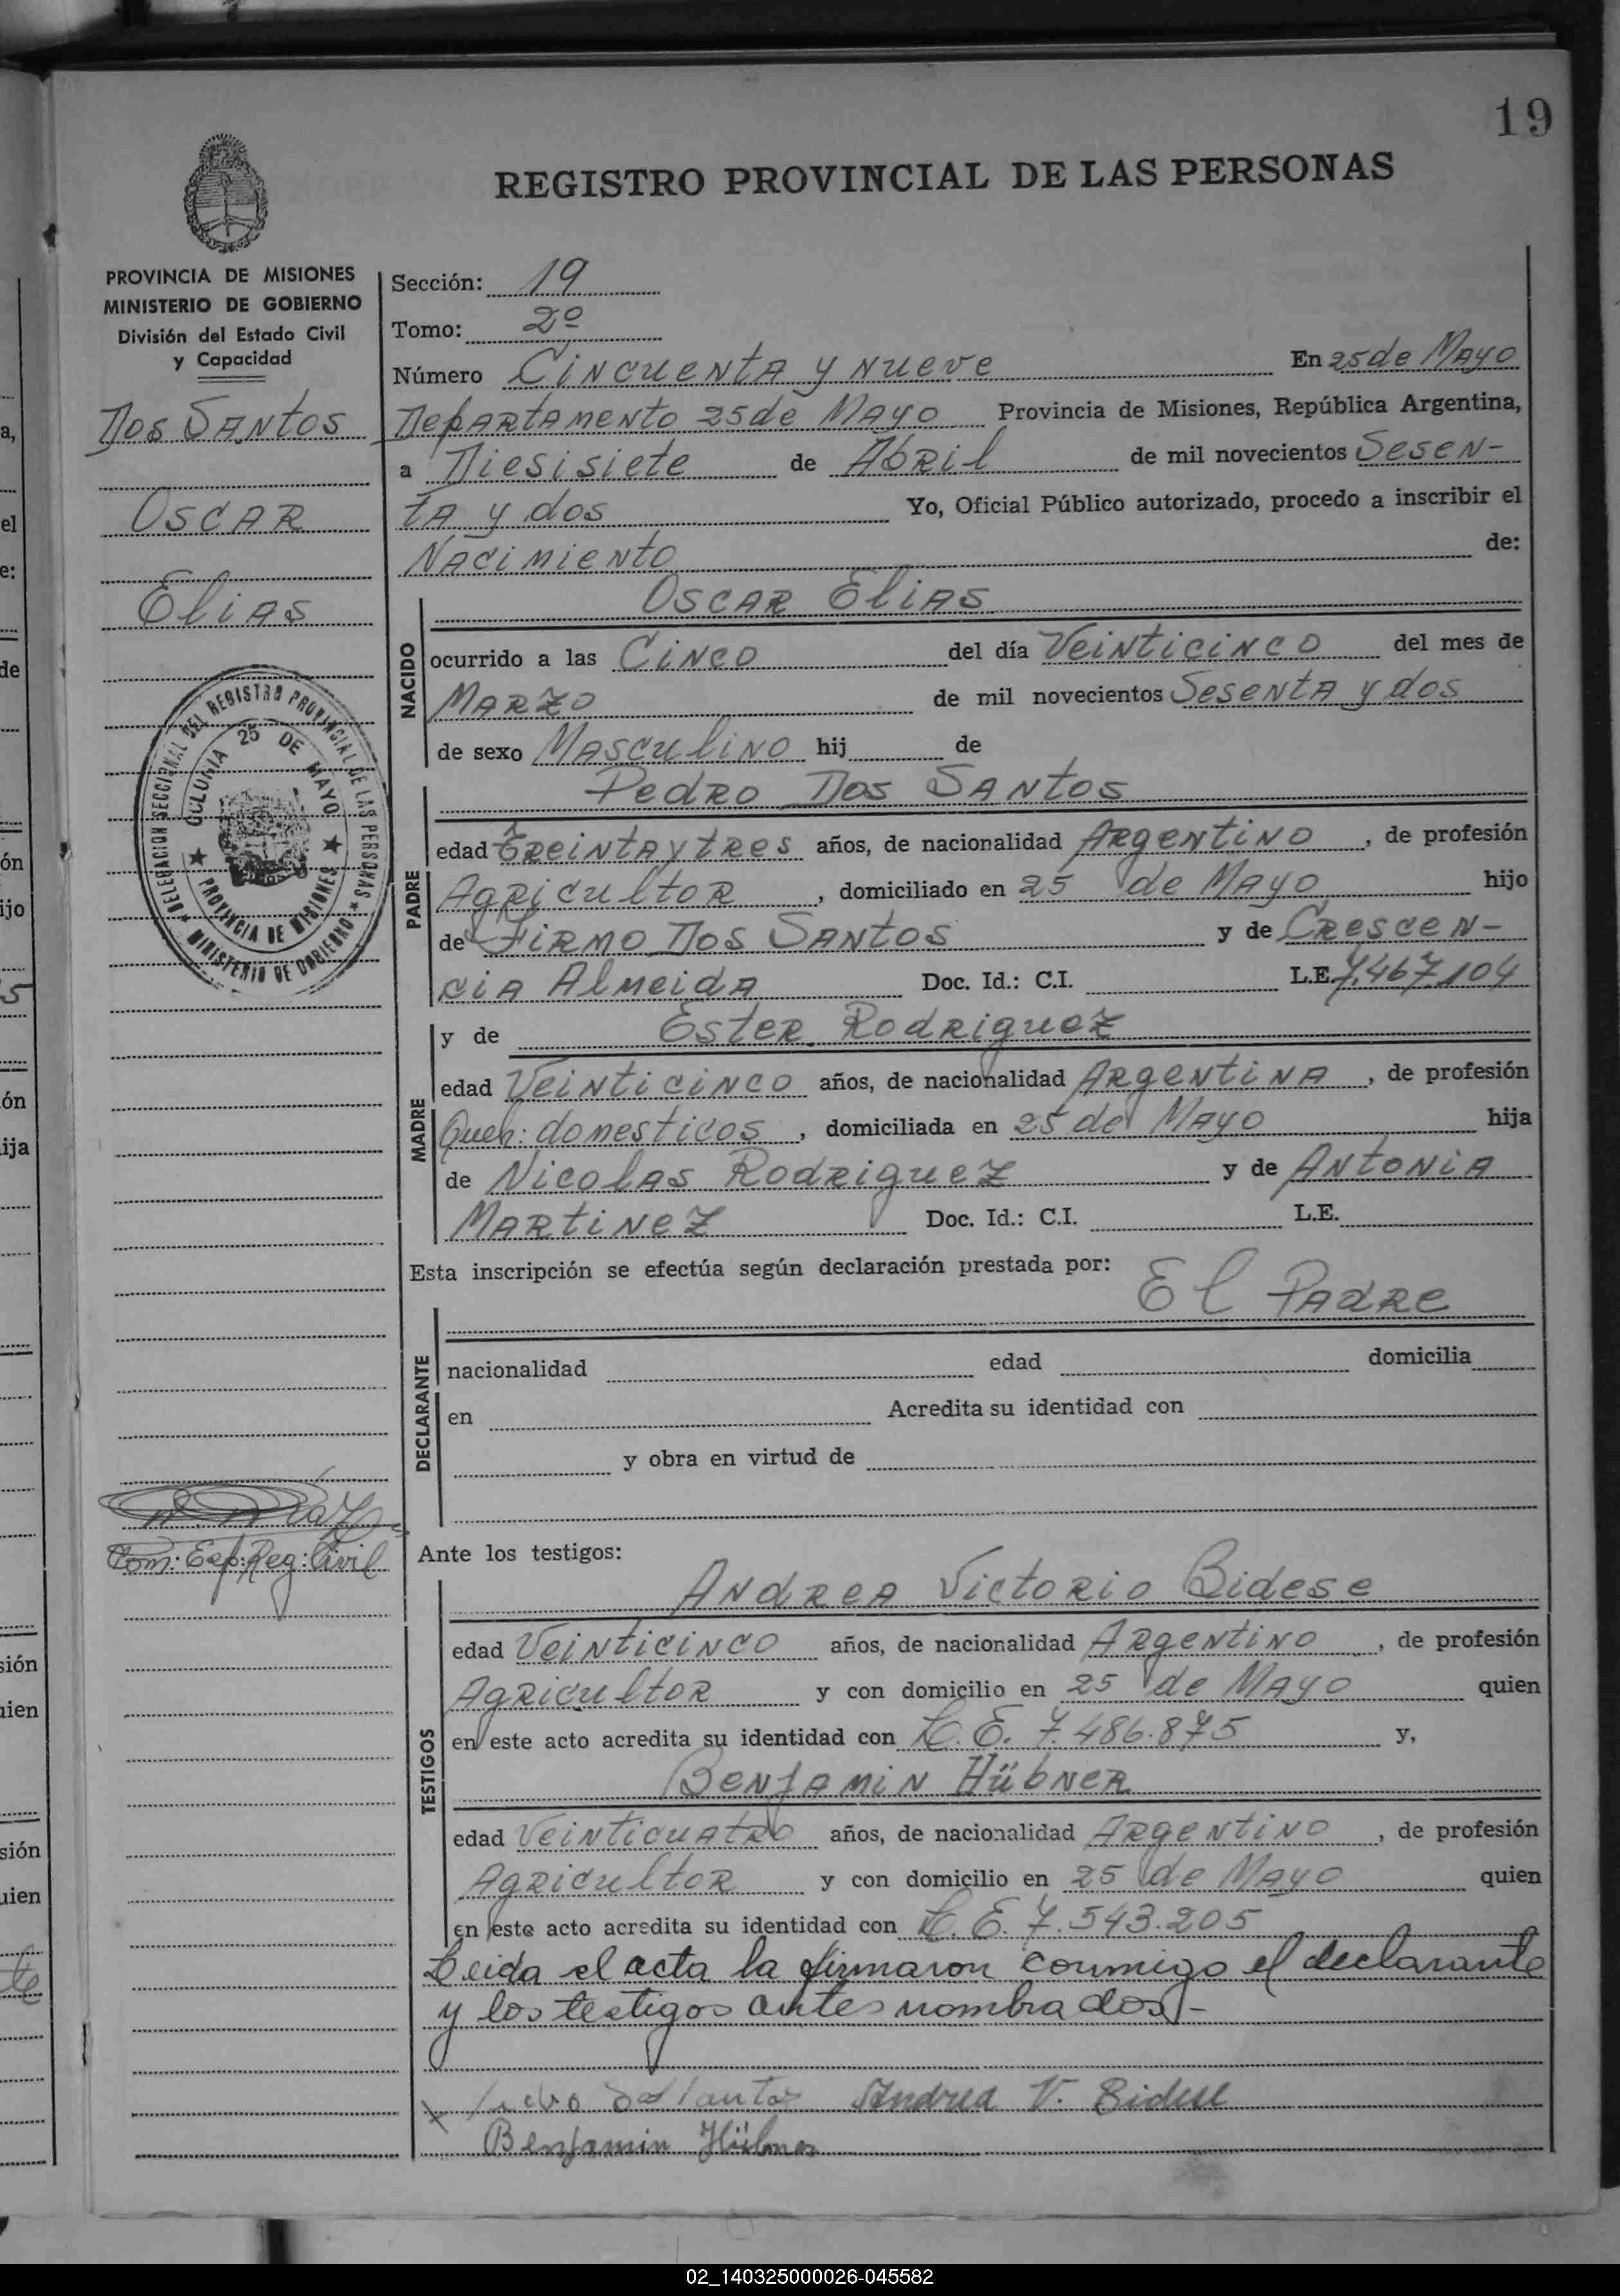 19
REGISTRO PROVINCIAL DE LAS PERSONAS
PROVINCIA DE MISIONES
MINISTERIO DE GOBIERNO
División del Estado Civil
y Capacidad
Dos Santos
Oscar
Elias
DELEGACION SECCIONAL DEL REGISTRO PROVINCIAL DE LAS PERSONAS
MINISTERIO DE GOBIERNO
COLONIA 25 DE MAYO
PROVINCIA DE MISIONES
Com: Esp: Reg: Civil
Sección: 19
Tomo: 2º
Número Cincuenta y nueve En 25 de Mayo
Departamento 25 de Mayo Provincia de Misiones, República Argentina,
a Diesisiete de Abril de mil novecientos Sesen-
ta y dos Yo, Oficial Público autorizado, procedo a inscribir el
Nacimiento de:
NACIDO
Oscar Elias
ocurrido a las Cinco del día Veinticinco del mes de
Marzo de mil novecientos Sesenta y dos
de sexo Masculino hij de
PADRE
Pedro Dos Santos
edad treinta y tres años, de nacionalidad Argentino, de profesión
Agricultor, domiciliado en 25 de Mayo hijo
de Firmo Dos Santos y de Crescen-
cia Almeida Doc. Id.: C.I. L.E. 7.467.104
MADRE
y de Ester Rodriguez
edad Veinticinco años, de nacionalidad Argentina, de profesión
Queh: domesticos, domiciliada en 25 de Mayo hija
de Nicolas Rodriguez y de Antonia
Martinez Doc. Id.: C.I. L.E.
Esta inscripción se efectúa según declaración prestada por:
El Padre
DECLARANTE
nacionalidad edad domicilia
en Acredita su identidad con
y obra en virtud de
Ante los testigos:
TESTIGOS
Andrea Victorio Bidese
edad Veinticinco años, de nacionalidad Argentino, de profesión
Agricultor y con domicilio en 25 de Mayo quien
en este acto acredita su identidad con L.E. 7.486.875 y,
Benjamin Hübner
edad Veinticuatro años, de nacionalidad Argentino, de profesión
Agricultor y con domicilio en 25 de Mayo quien
en este acto acredita su identidad con L.E. 7.543.205
Leida el acta la firmaron conmigo el declarante
y los testigos antes nombrados.-
Andrea V. Bidese
Benjamin Hübner
02_140325000026-045582